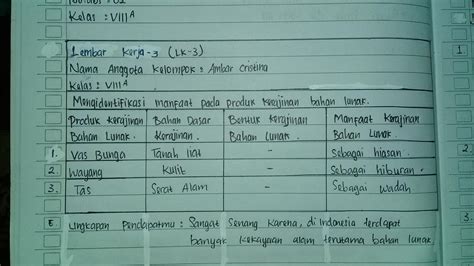 : 02
Kelas : VIII A
Lembar Kerja-3 (LK-3)
Nama Anggota Kelompok : Ambar Cristina
Kelas : VIII A
Mengidentifikasi manfaat pada produk kerajinan bahan lunak.
Produk Kerajinan Bahan Dasar Bentuk Kerajinan Manfaat Kerajinan
Bahan Lunak. Kerajinan. Bahan Lunak. Bahan Lunak.
1. Vas Bunga Tanah liat - Sebagai hiasan. 2.
2. Wayang Kulit - Sebagai hiburan.
3. Tas Serat Alam - Sebagai Wadah 3.
E. Ungkapan Pendapatmu : Sangat Senang karena, di Indonesia terdapat
banyak kekayaan alam terutama bahan lunak.